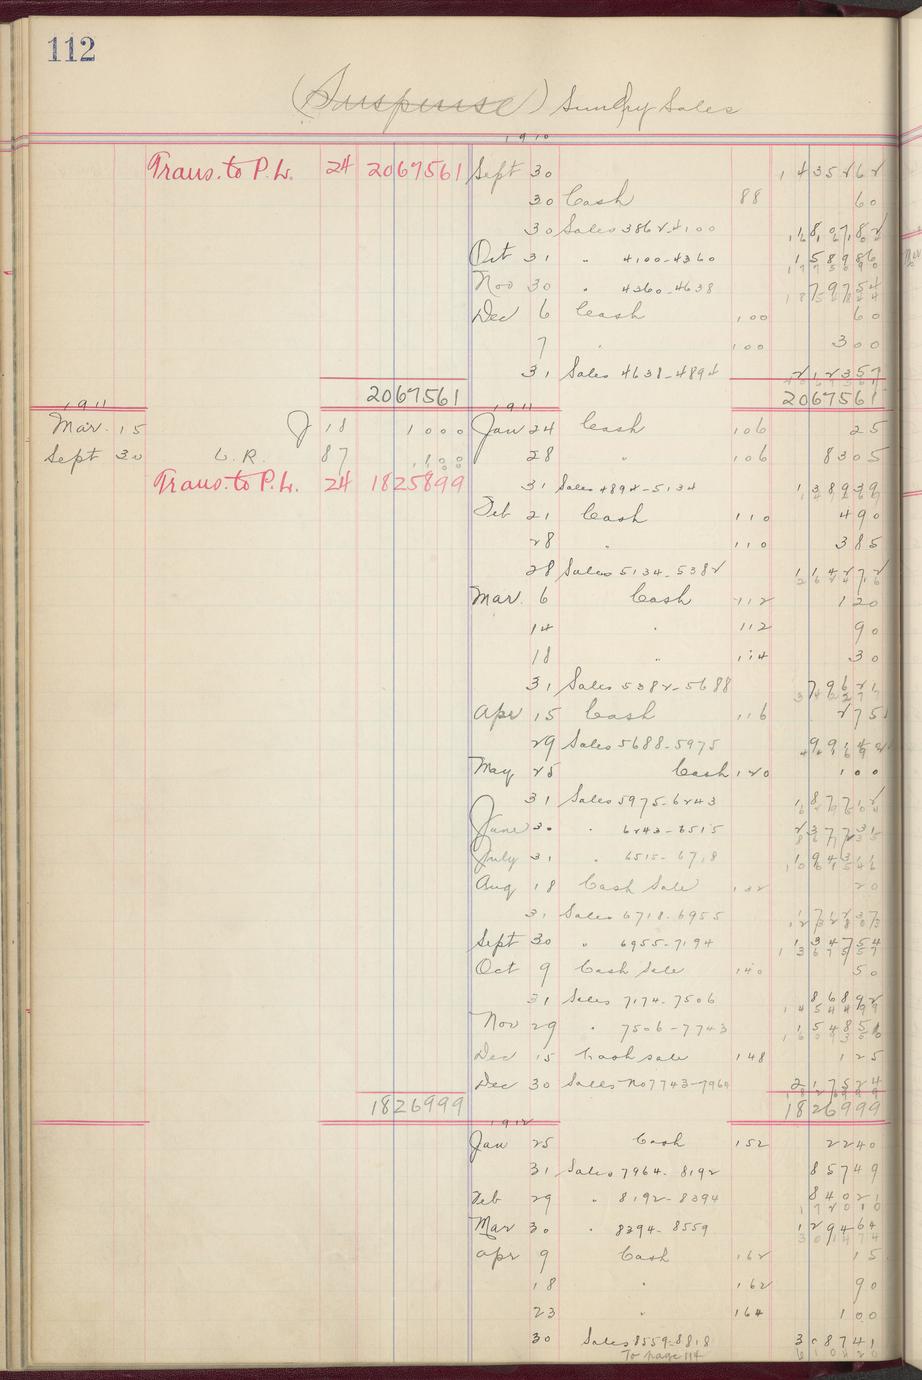 112
(Suspense) Sundry Sales
1910
Trans. to P. L. 24 2067561 Sept 30 1435262
30 Cash 88 60
30 Sales 3862-4100 180782
Oct 31 " 4100-4360 158986
Nov 30 " 4360-4638 79754
Dec 6 Cash 100 60
7 " 100 300
31 Sales 4638-4894 212357
2067561 2067561
1911 1911
Mar. 15 J 18 1000 Jan 24 Cash 106 25
Sept 30 L. R. 87 100 28 " 106 8305
Trans. to P. L. 24 1825899 31 Sales 4894-5134 138939
Feb 21 Cash 110 490
28 " 110 385
28 Sales 5134-5382 114272
Mar. 6 Cash 112 120
14 " 112 90
18 " 114 30
31 Sales 5382-5688 79621
Apr 15 Cash 116 275
29 Sales 5688-5975
May 25 Cash 120 100
31 Sales 5975-6243 187712
June 30 " 6243-6515 237731
July 31 " 6515-6718 194311
Aug 18 Cash Sale 132 20
31 Sales 6718-6955 171237
Sept 30 " 6955-7194 134754
Oct 9 Cash Sale 140 50
31 Sales 7174-7506 86892
Nov 29 " 7506-7743 154851
Dec 15 Cash sale 148 125
Dec 30 Sales No 7743-7964 217524
1826999 1826999
1912
Jan 25 Cash 152 2240
31 Sales 7964-8192 85749
Feb 29 " 8192-8394 84021
172010
Mar 30 " 8394-8559 129464
301474
Apr 9 Cash 162 15
18 " 162 90
23 " 164 100
30 Sales 8559-8818 308741
To page 114 610420